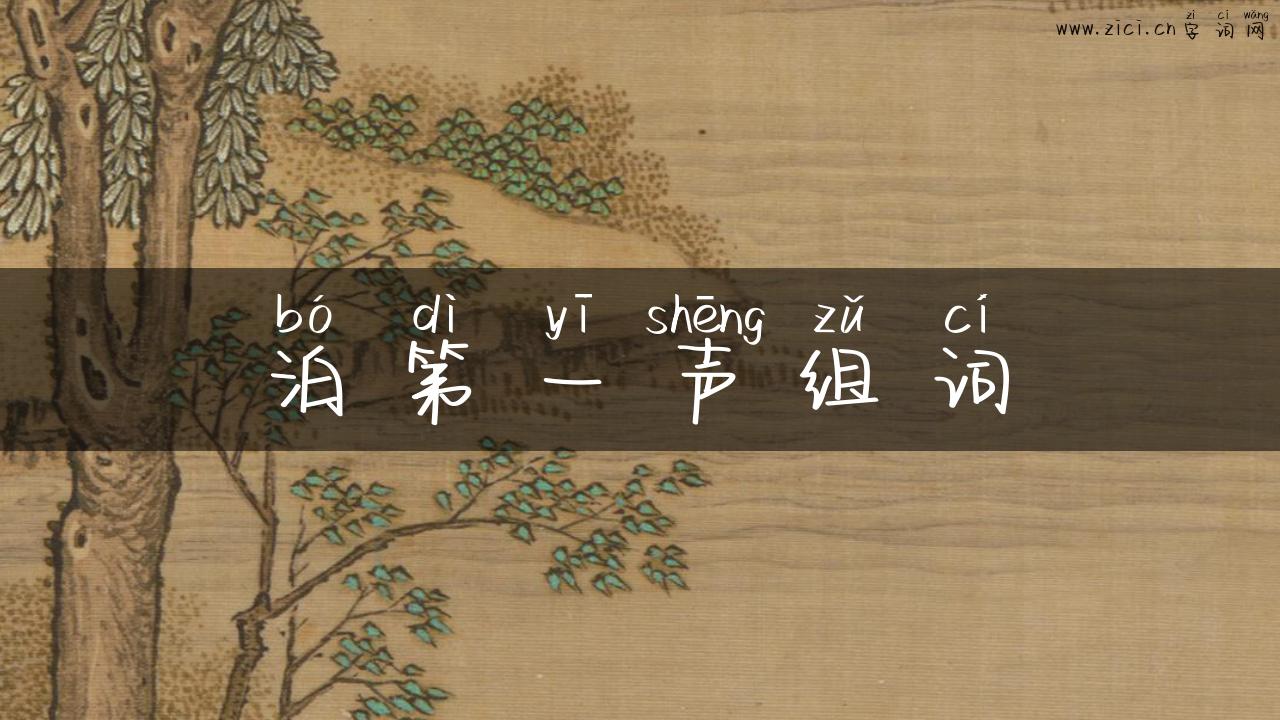 zì cí wǎng
www.zici.cn 字词网
bó dì yī shēng zǔ cí
泊第一声组词